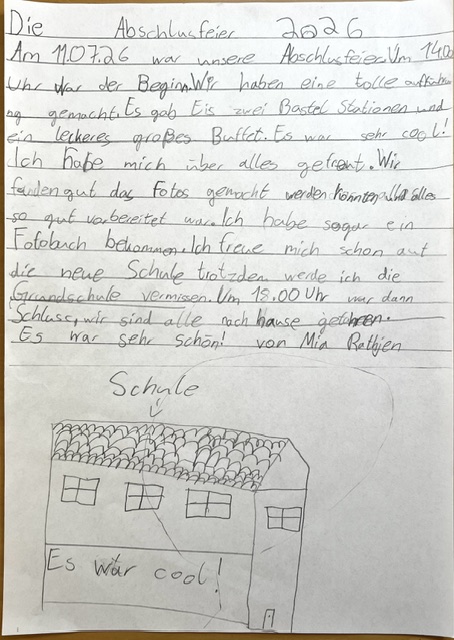 Die Abschlusfeier 2026
Am 11.07.26 war unsere Abschlusfeier. Um 14.00
Uhr war der Beginn. Wir haben eine tolle aufführu
ng gemacht. Es gab Eis zwei Bastel Stationen und
ein leckeres großes Buffet. Es war sehr cool!
Ich habe mich über alles gefreut. Wir
fanden gut das Fotos gemacht werden könnten und alles
so gut vorbereitet war. Ich habe sogar ein
Fotobuch bekommen. Ich freue mich schon auf
die neue Schule trotzdem werde ich die
Grundschule vermissen. Um 18.00 Uhr war dann
Schluss, wir sind alle nach hause gefahren.
Es war sehr schön! von Mia Rathjen
Schule
Es war cool!